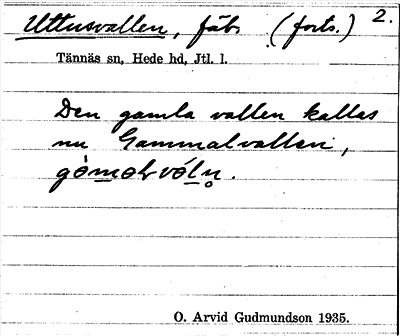 Uttusvallen, fäb. (forts.) 2.
Tännäs sn, Hede hd, Jtl. l.
Den gamla vallen kallas
nu Gammalvallen,
O. Arvid Gudmundson 1935.